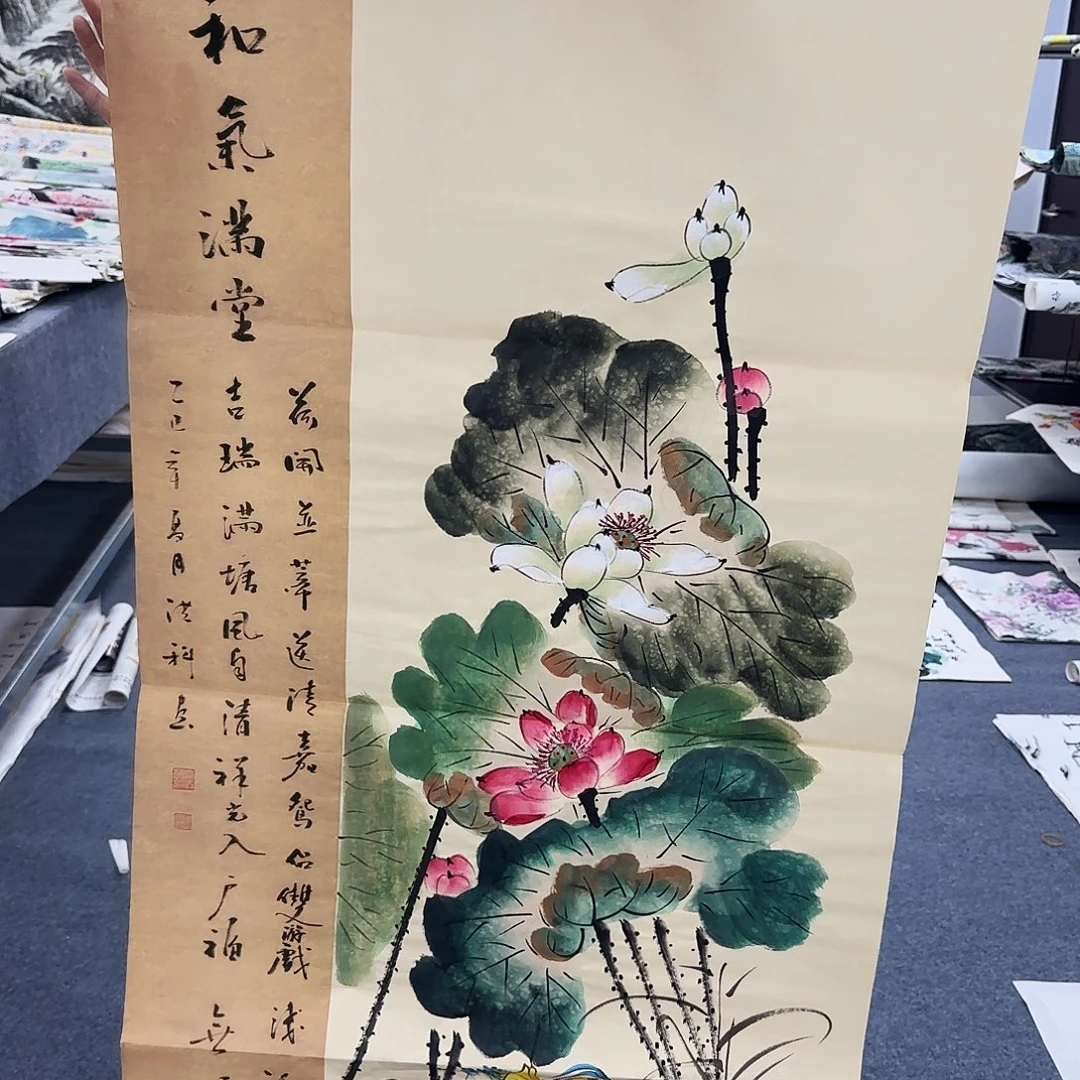 和氣滿堂
荷開並蒂送清嘉鴛侶雙游戲淺
吉瑞滿塘風自清祥光入户福無
乙巳年夏月洪科